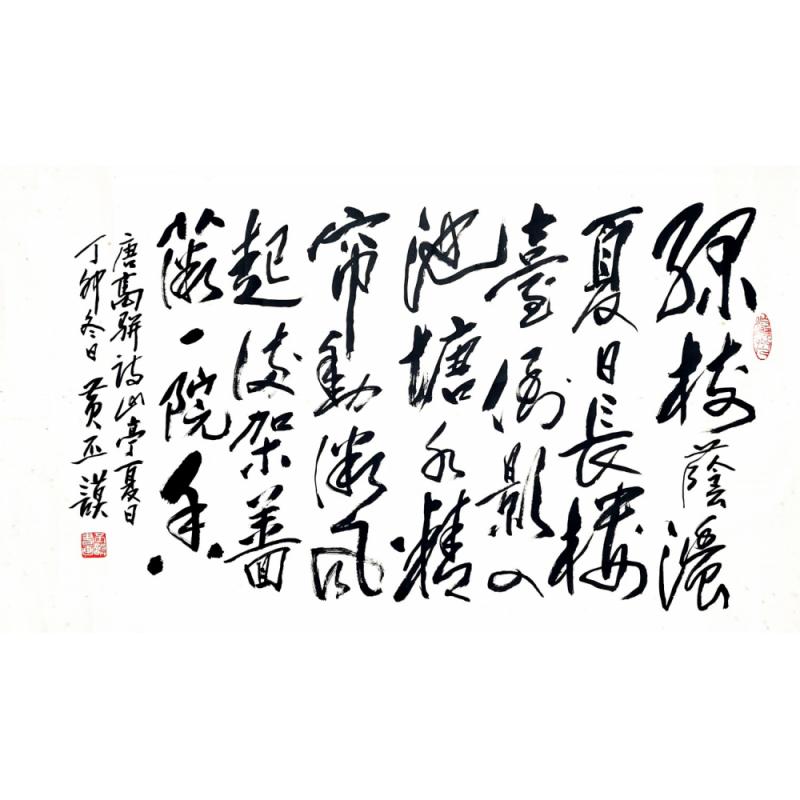 綠樹蔭濃
夏日長樓
臺倒影入
池塘水精
帘動微風
起滿架薔
薇一院香
唐高駢詩山亭夏日
丁卯冬日 黄丕謨